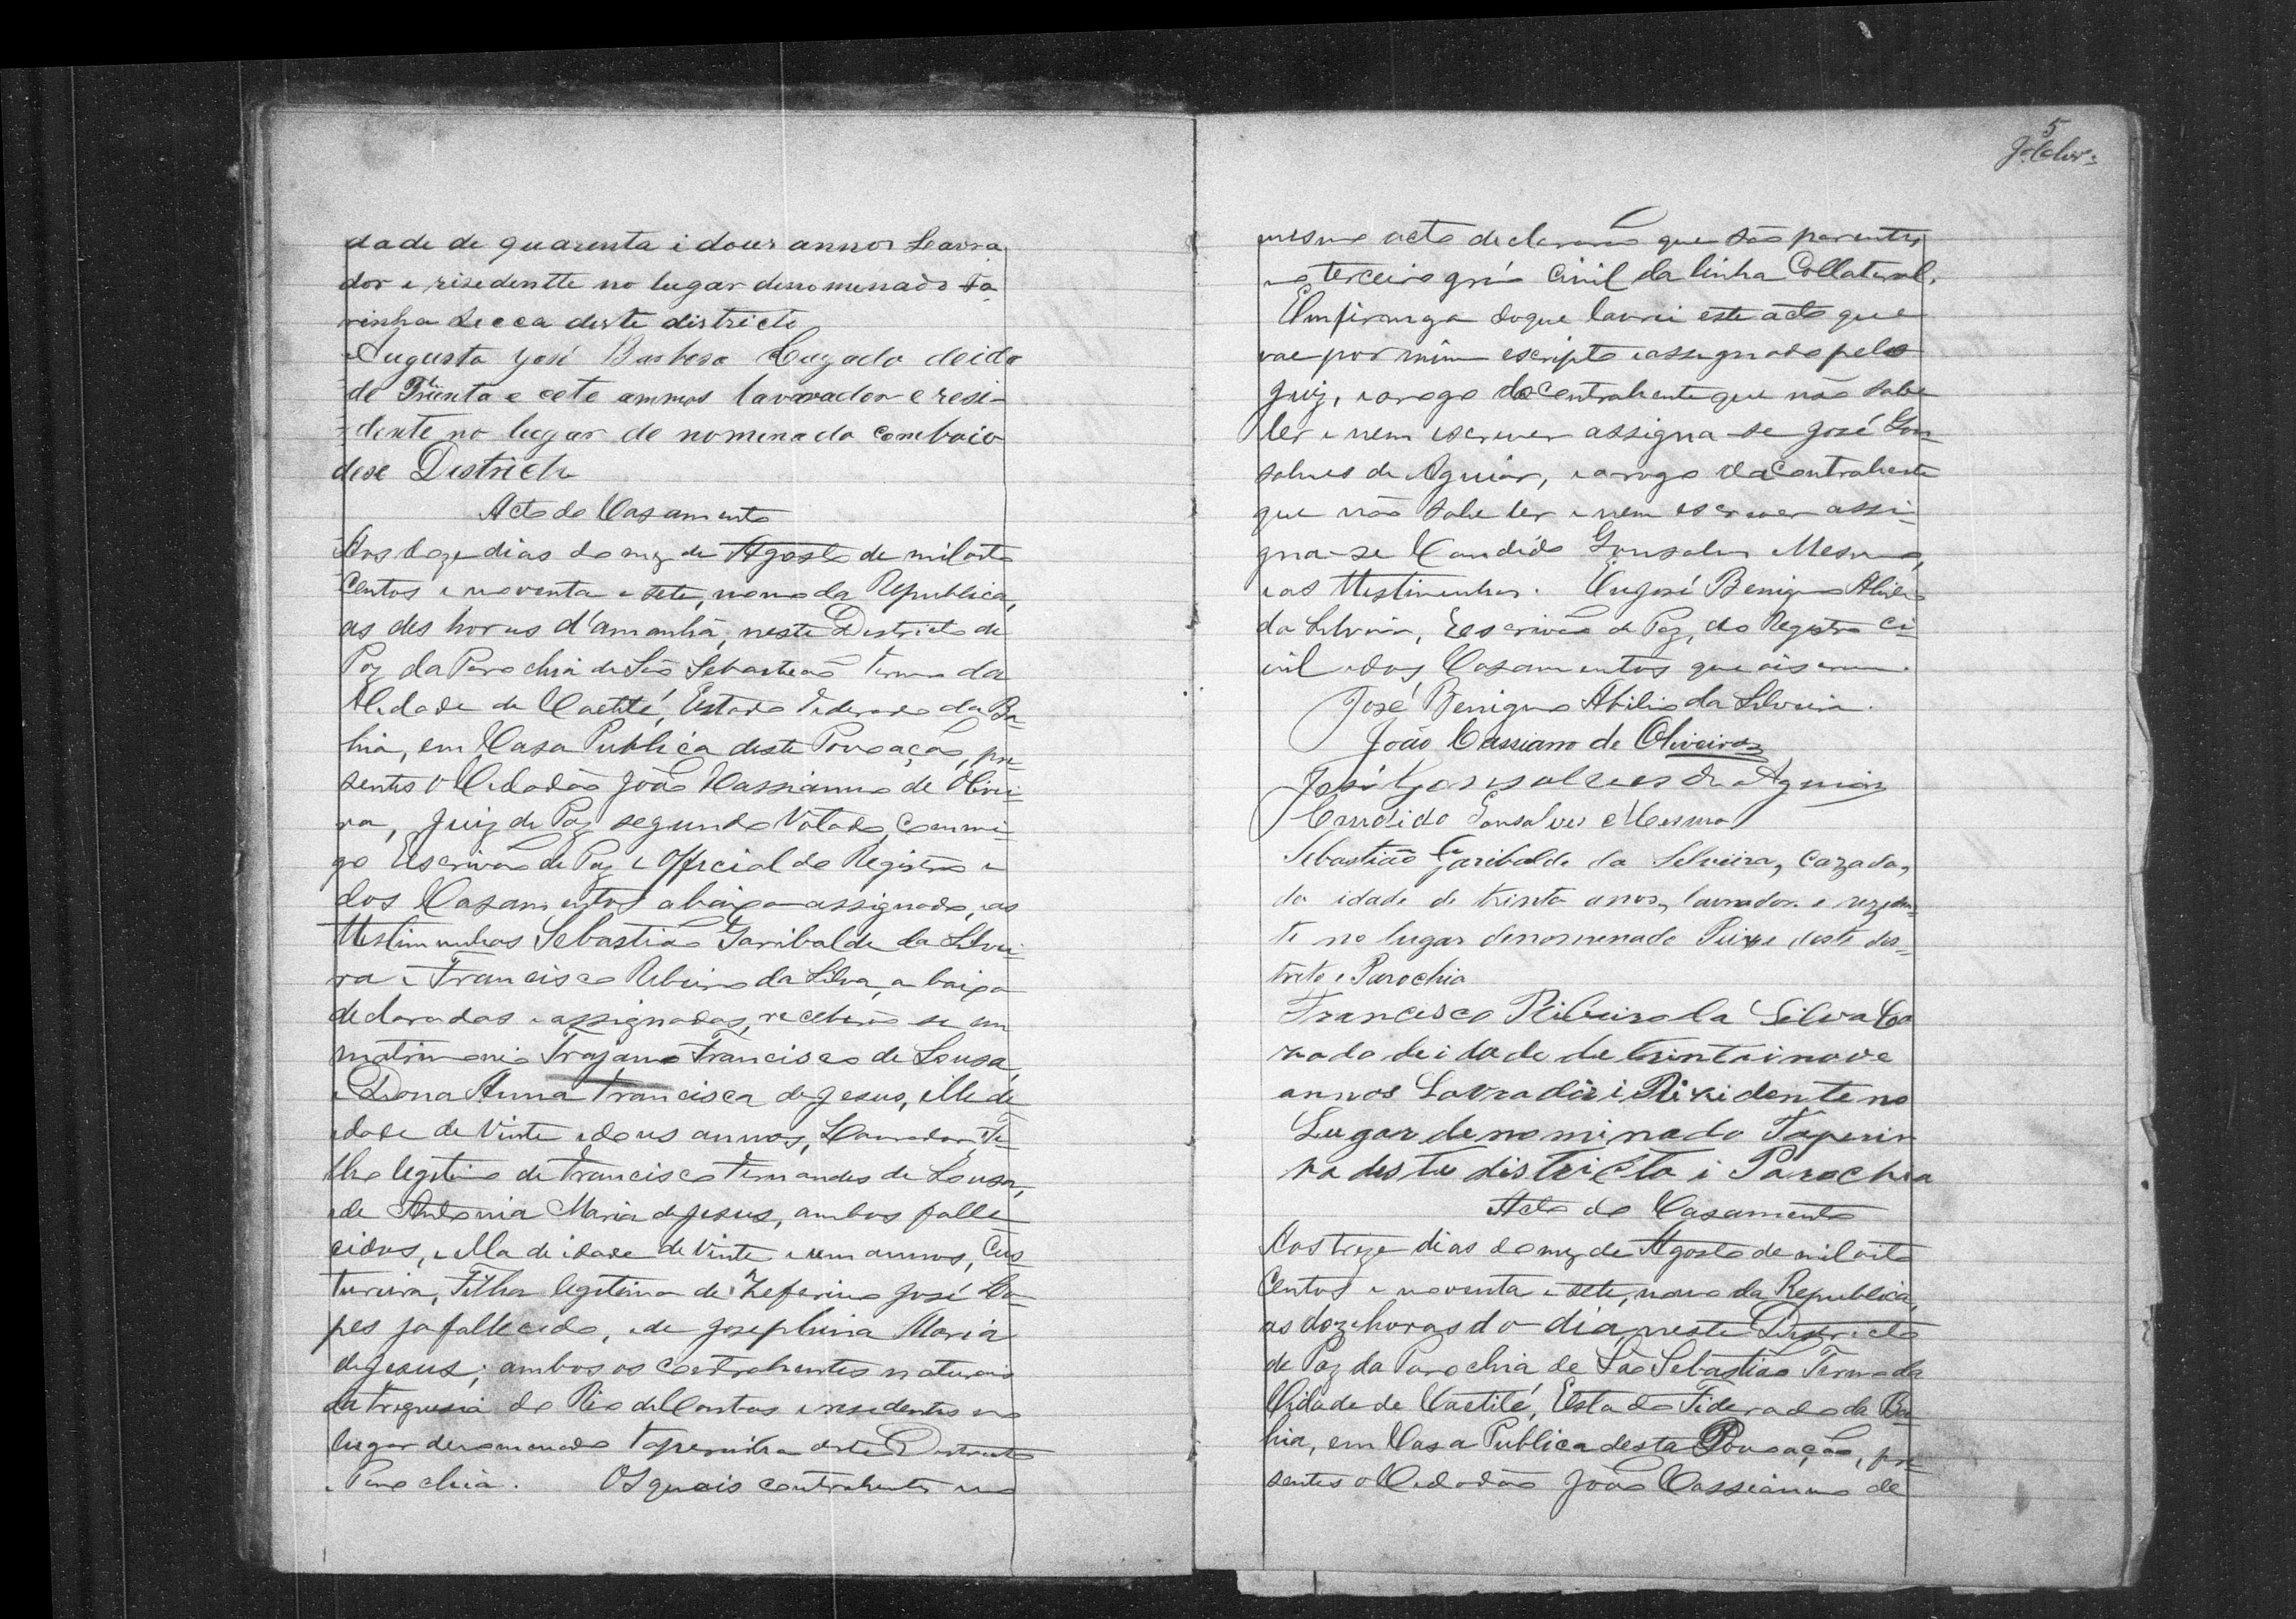 dade de quarenta i dous annos Lavra
dor e risedentte no lugar denomenado Fa
rinha Secca deste districto
Augusto José Barbosa Cazado deida
de Trinta e cete ammos lavavador e resi-
dente no lugar de nomenado comboio
dese Districto
Acto do Casamento
Aos doze dias do mez de Agosto de mil oito
Centos e noventa e sete, nono da Republica,
as des horas d'amanhã, neste Districto de
Paz da Parochia de São Sebasteão Termo da
Cidade de Caetité, Estado Federado da Ba-
hia, em Casa Publica desta Povoação, pre-
sentes o Cidadão João Cassianno de Olivei-
ra, Juiz de Paz segundo Votado, commi-
go Escrivão de Paz e Official do Registro e
dos Casamentos abaixo assignado, e as
Ttestimunhas Sebastião Garibalde da Silvei-
ra e Francisco Ribeiro da Silva, a baixo
declaradas e assignadas, receberão se em
matrimonio Trajano Francisco de Sousa,
e Dona Anna Francisca de Jesus, elle de
idade de Vinte e dous annos, Lavrador, Fi-
lho legitimo de Francisco Fernandes de Sousa,
e de Antonia Maria de Jesus, ambos falle-
cidos, e ella de idade de Vinte e um annos, Cus-
tureira, Filha legitima de Zeferino José Lo-
pes ja fallecido, e de Josephina Maria
de Jesus; ambos os contrahentes naturais
da Freguesia do Rio de Contas e residentes no
lugar denomenado Taperinha deste Districto
e Parochia. Os quais contrahentes no
5
mesmo acto declararão que são parentes
no terceiro gráo Civil da linha Collateral.
Em firmeza doque lavrei este acto que
vae por mim escripto e assignado pelo
Juiz, e arogo do Contrahente que não sabe
ler e nem escrever assigna-se José Gon-
salves de Aguiar, e arogo da Contrahente
que não sabe ler e nem escrever assi-
gna-se Candido Gonsalves Mesmo,
e as Ttestimunhas. Eu José Benigno Abilio
da Silveira, Escrivão de Paz, do Registro Ci-
vil e dos Casamentos que o iscrevi.
José Benigno Abilio da Silveira.
João Cassiano de Oliveira
José Gonsalves de Aguiar
Candido Gonsalves Mesmo
Sebastião Garibalde da Silveira, cazado,
da idade de trinta anos, lavrador e rezeden-
te no lugar denomenado deste des-
treto e Parochia
Francisco Ribeiro da Silva Ca
zado deidade de trintainove
annos Lavradir i Rizidente no
Lugar denominado Taperin
ha deste districto i Parochia
Acto do Casamento
Aos treze dias do mez de Agosto de mil oito
Centos e noventa e sete, nono da Republica,
as doze horas do dia, neste Districto
de Paz da Parochia de São Sebastião Termo da
Cidade de Caetité, Estado Federado da Ba-
hia, em Casa Publica desta Povoação, pre-
sentes o Cidadão João Cassianno de